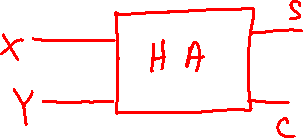 X
Y
H A
S
C